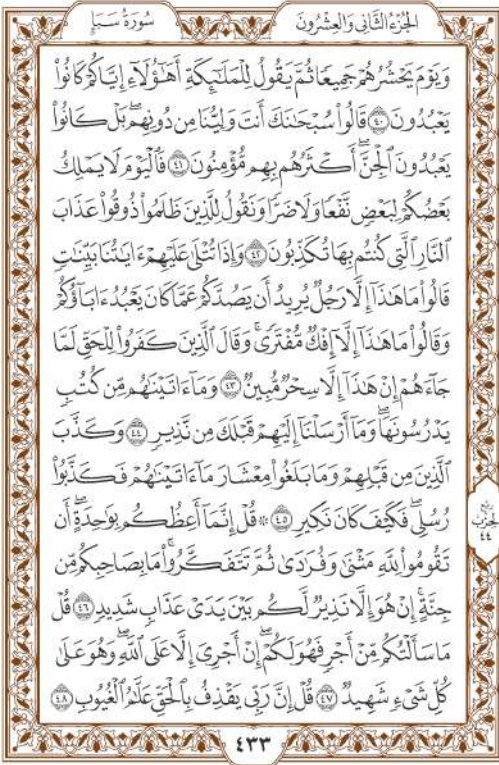 الجزء الثاني والعشرون
سورة سبإ
وَيَوْمَ يَحْشُرُهُمْ جَمِيعًا ثُمَّ يَقُولُ لِلْمَلَٰٓئِكَةِ أَهَٰٓؤُلَآءِ إِيَّاكُمْ كَانُوا۟
يَعْبُدُونَ ٤٠ قَالُوا۟ سُبْحَٰنَكَ أَنتَ وَلِيُّنَا مِن دُونِهِم ۖ بَلْ كَانُوا۟
يَعْبُدُونَ ٱلْجِنَّ ۖ أَكْثَرُهُم بِهِم مُّؤْمِنُونَ ٤١ فَٱلْيَوْمَ لَا يَمْلِكُ
بَعْضُكُمْ لِبَعْضٍ نَّفْعًا وَلَا ضَرًّا وَنَقُولُ لِلَّذِينَ ظَلَمُوا۟ ذُوقُوا۟ عَذَابَ
ٱلنَّارِ ٱلَّتِى كُنتُم بِهَا تُكَذِّبُونَ ٤٢ وَإِذَا تُتْلَىٰ عَلَيْهِمْ ءَايَٰتُنَا بَيِّنَٰتٍ
قَالُوا۟ مَا هَٰذَآ إِلَّا رَجُلٌ يُرِيدُ أَن يَصُدَّكُمْ عَمَّا كَانَ يَعْبُدُ ءَابَآؤُكُمْ
وَقَالُوا۟ مَا هَٰذَآ إِلَّآ إِفْكٌ مُّفْتَرًى ۚ وَقَالَ ٱلَّذِينَ كَفَرُوا۟ لِلْحَقِّ لَمَّا
جَآءَهُمْ إِنْ هَٰذَآ إِلَّا سِحْرٌ مُّبِينٌ ٤٣ وَمَآ ءَاتَيْنَٰهُم مِّن كُتُبٍ
يَدْرُسُونَهَا ۖ وَمَآ أَرْسَلْنَآ إِلَيْهِمْ قَبْلَكَ مِن نَّذِيرٍ ٤٤ وَكَذَّبَ
ٱلَّذِينَ مِن قَبْلِهِمْ وَمَا بَلَغُوا۟ مِعْشَارَ مَآ ءَاتَيْنَٰهُمْ فَكَذَّبُوا۟
رُسُلِى ۖ فَكَيْفَ كَانَ نَكِيرِ ٤٥ ۞ قُلْ إِنَّمَآ أَعِظُكُم بِوَٰحِدَةٍ ۖ أَن
تَقُومُوا۟ لِلَّهِ مَثْنَىٰ وَفُرَٰدَىٰ ثُمَّ تَتَفَكَّرُوا۟ ۚ مَا بِصَاحِبِكُم مِّن
جِنَّةٍ ۚ إِنْ هُوَ إِلَّا نَذِيرٌ لَّكُم بَيْنَ يَدَىْ عَذَابٍ شَدِيدٍ ٤٦ قُلْ
مَا سَأَلْتُكُم مِّنْ أَجْرٍ فَهُوَ لَكُمْ ۖ إِنْ أَجْرِىَ إِلَّا عَلَى ٱللَّهِ ۖ وَهُوَ عَلَىٰ
كُلِّ شَىْءٍ شَهِيدٌ ٤٧ قُلْ إِنَّ رَبِّى يَقْذِفُ بِٱلْحَقِّ عَلَّٰمُ ٱلْغُيُوبِ ٤٨
ربع
الحزب
٤٤
٤٣٣